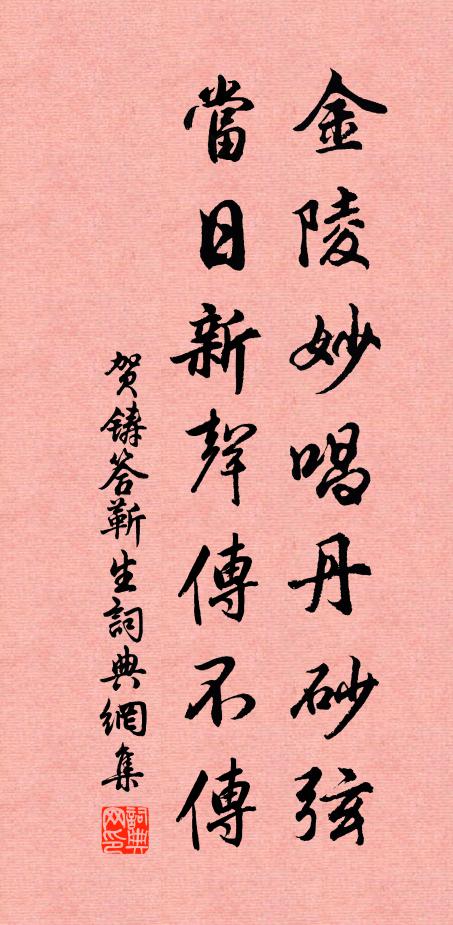 金陵妙唱丹砂弦
當日新聲傳不傳
贺鑄答靳生詞典網集
詞典网印